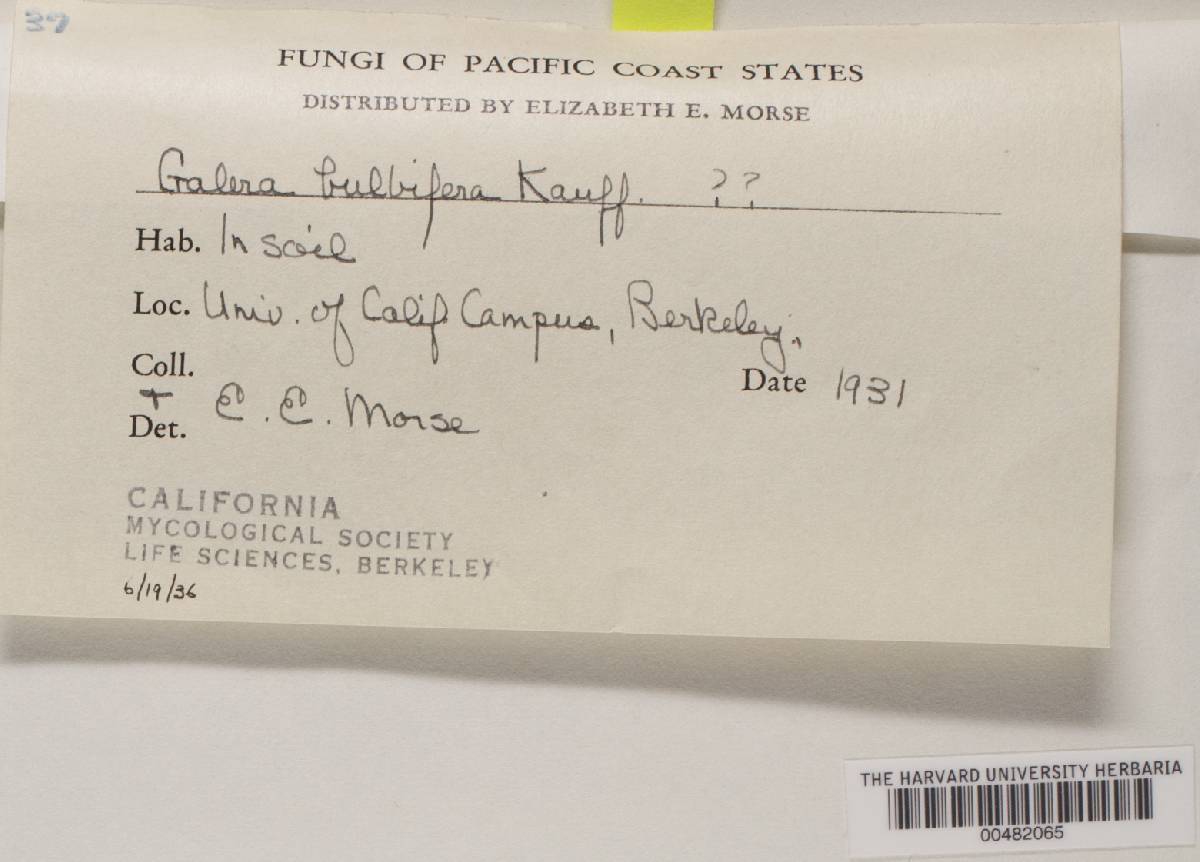 37
FUNGI OF PACIFIC COAST STATES
DISTRIBUTED BY ELIZABETH E. MORSE
Galera bulbifera Kauff. ??
Hab. In soil
Loc. Univ. of Calif Campus, Berkeley.
Coll.
Date 1931
+ E. E. Morse
Det.
CALIFORNIA
MYCOLOGICAL SOCIETY
LIFE SCIENCES, BERKELEY
6/19/36
THE HARVARD UNIVERSITY HERBARIA
00482065